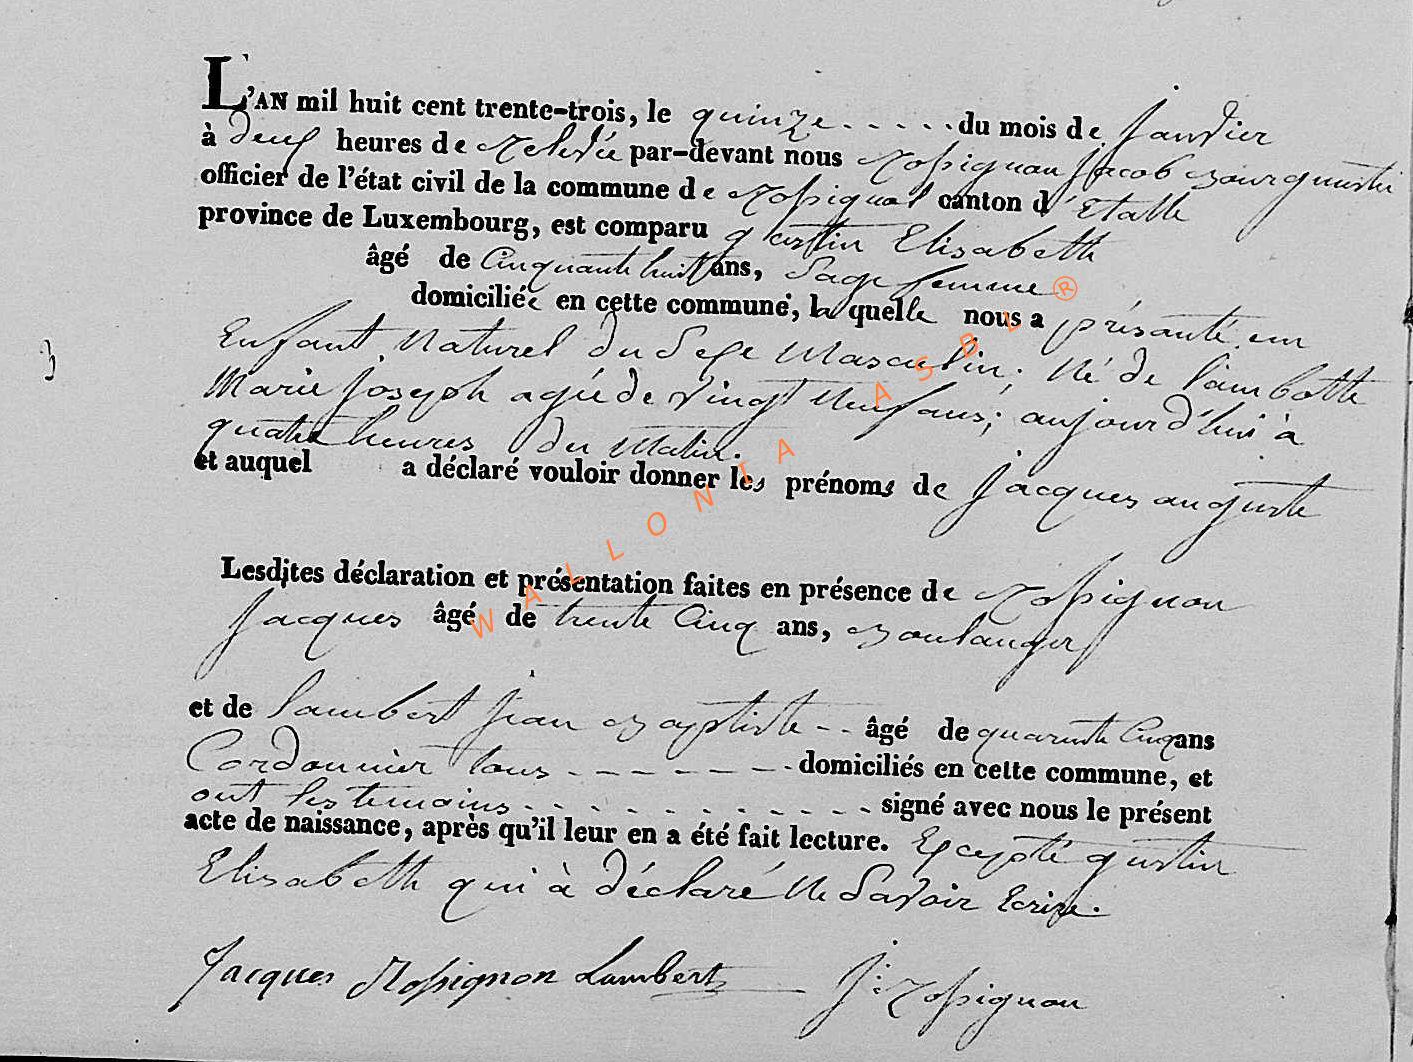 L'AN mil huit cent trente-trois, le quinze - - - - - du mois de Janvier
à deux heures de Relevée par-devant nous Rossignon Jacob Bourguemestre
officier de l'état civil de la commune de Rossignol canton d'Etalle
province de Luxembourg, est comparu gustin Elisabeth
âgé de Cinquante huit ans, Sage femme
domiciliée en cette commune, la quelle nous a présanté un
Enfant Naturel du Sexe Masculin; Né de Lambotte
Marie Joseph agée de vingt Neuf ans; aujourd'hui à
quatre heures du Matin.
et auquel a déclaré vouloir donner les prénoms de Jacques auguste
Lesdites déclaration et présentation faites en présence de Rossignon
Jacques âgé de trente Cinq ans, Boulanger
et de Lambert Jean Baptiste - - âgé de quarente Cinq ans
Cordonnier tous - - - - - - - domiciliés en cette commune, et
ont les temoins - - - - - - - - - - - - signé avec nous le présent
acte de naissance, après qu'il leur en a été fait lecture. Excepté gustin
Elisabeth qui à déclaré Ne Savoir Ecrire.
Jacques Rossignon Lambert J: Rossignon
WALLONIA ASBL ®